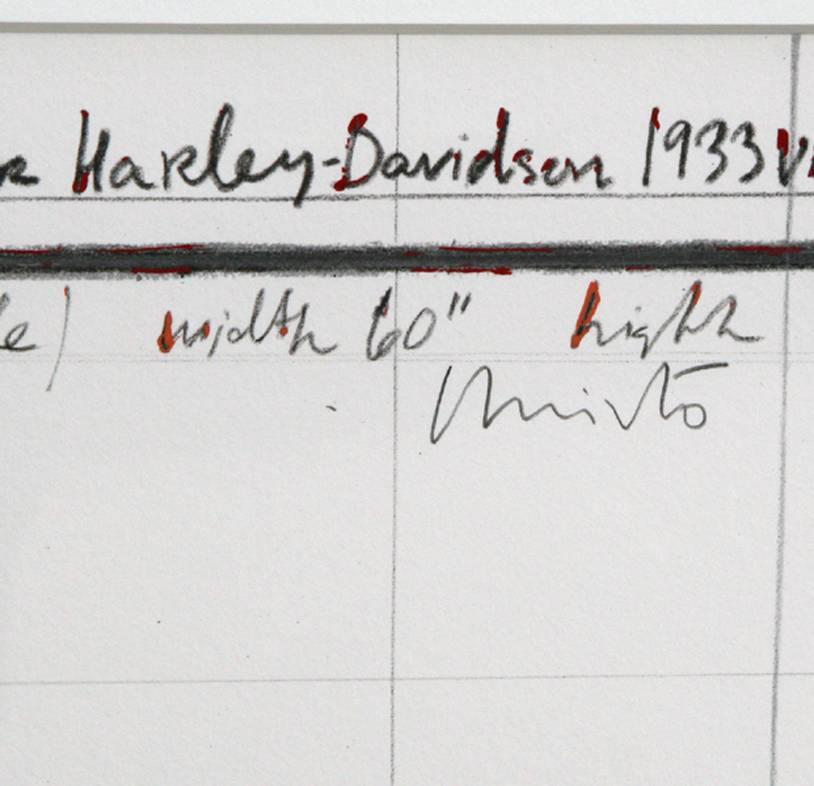 Harley-Davidson 1933 V
le) width 60" hight
Christo